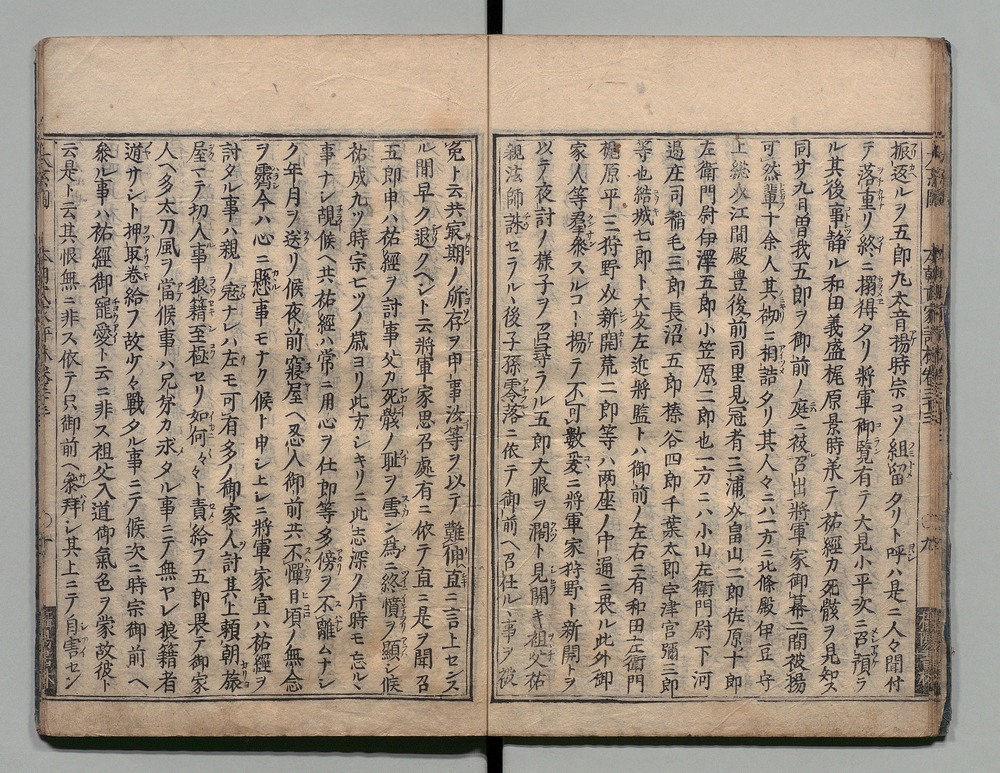 振返ルヲ五郎丸太音揚時宗コソ組留タリト呼ハ是ニ人々聞付
テ落重リ終ニ搦得タリ將軍御覧有テ大見小平次ニ召預ラ
ル其後事静ル和田義盛梶原景時承テ祐經カ死骸ヲ見知ス
同廿九日曽我五郎ヲ御前ノ庭ニ被召出將軍家御幕二間被揚
可然輩十余人其砌ニ相詰タリ其人々ニハ一方ニ北條殿伊豆守
上総次江間殿豊後前司里見冠者三浦次畠山二郎佐原十郎
左衛門尉伊澤五郎小笠原二郎也一方ニハ小山左衛門尉下河
邉庄司稲毛三郎長沼五郎榛谷四郎千葉太郎宇津宮彌三郎
等也結城七郎ト大友左近將監トハ御前ノ左右ニ有和田左衛門
梶原平三狩野次新開荒二郎等ハ両座ノ中ヲ通ニ畏ル此外御
家人等羣參スルコト揚テ不可數爰ニ將軍家狩野ト新開トヲ
以テ夜討ノ様子ヲ召尋ラル五郎大眼ヲ濶ト見開キ祖父祐
親法師誅セラルヽ後子孫零落ニ依テ御前ヘ召仕ルヽ事ヲ被
免ト云共㝡期ノ所存ヲ申事汝等ヲ以テ難伸直ニ言上センス
ル間早ク退クヘシト云將軍家思召處有ニ依テ直ニ是ヲ聞召
五郎申ハ祐經ヲ討事父カ死骸ノ耻ヲ雪ン為ニ終憤ヲ顯シ候
祐成九ツ時宗七ツノ歳ヨリ此方シキリニ此志深ノ片時モ忘ルヽ
事ナシ覘候ヘ共祐經ハ常ニ用心ヲ仕郎等多傍ヲ不離ムナシ
ク年月ヲ送リ候夜前寢屋ヘ忍入御前共不憚日頃ノ無念
ヲ霽今ハ心ニ懸事モナク候ト申シ上レニ將軍家宣ハ祐經ヲ
討タル事ハ親ノ寇ナレハ左モ可有多ノ御家人討其上頼朝旅
屋マテ切入事狼籍至極セリ如何々々ト責給フ五郎畏テ御家
人ヘ多太刀風ヲ當候事ハ兄弟カ求タル事ニテ無ヤレ狼籍者
道サシト押取卷給フ故少々戰タル事ニテ候次ニ時宗御前ヘ
參ル事ハ祐經御寵愛ト云ニ非ス祖父入道御氣色ヲ蒙故彼ト
云是ト云其恨無ニ非ス依テ只御前ヘ參拜シ其上ニテ自害セン